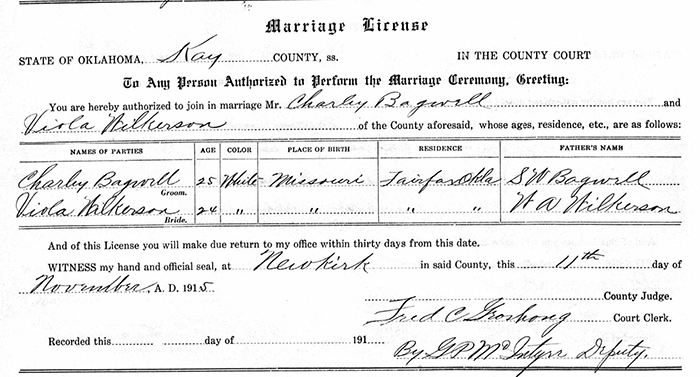 Marriage License
STATE OF OKLAHOMA, Kay COUNTY, ss. IN THE COUNTY COURT
To Any Person Authorized to Perform the Marriage Ceremony, Greeting:
You are hereby authorized to join in marriage Mr. Charley Bagwell and
Viola Wilkerson of the County aforesaid, whose ages, residence, etc., are as follows:
NAMES OF PARTIES AGE COLOR PLACE OF BIRTH RESIDENCE FATHER'S NAME
Charley Bagwell 25 White Missouri Fairfax Okla S W Bagwell
Groom.
Viola Wilkerson 24 " " " " W A Wilkerson
Bride.
And of this License you will make due return to my office within thirty days from this date.
WITNESS my hand and official seal, at Newkirk in said County, this 11th day of
November, A. D. 1915
County Judge.
Fred C Court Clerk.
Recorded this day of 191 By G P McIntyre Deputy.